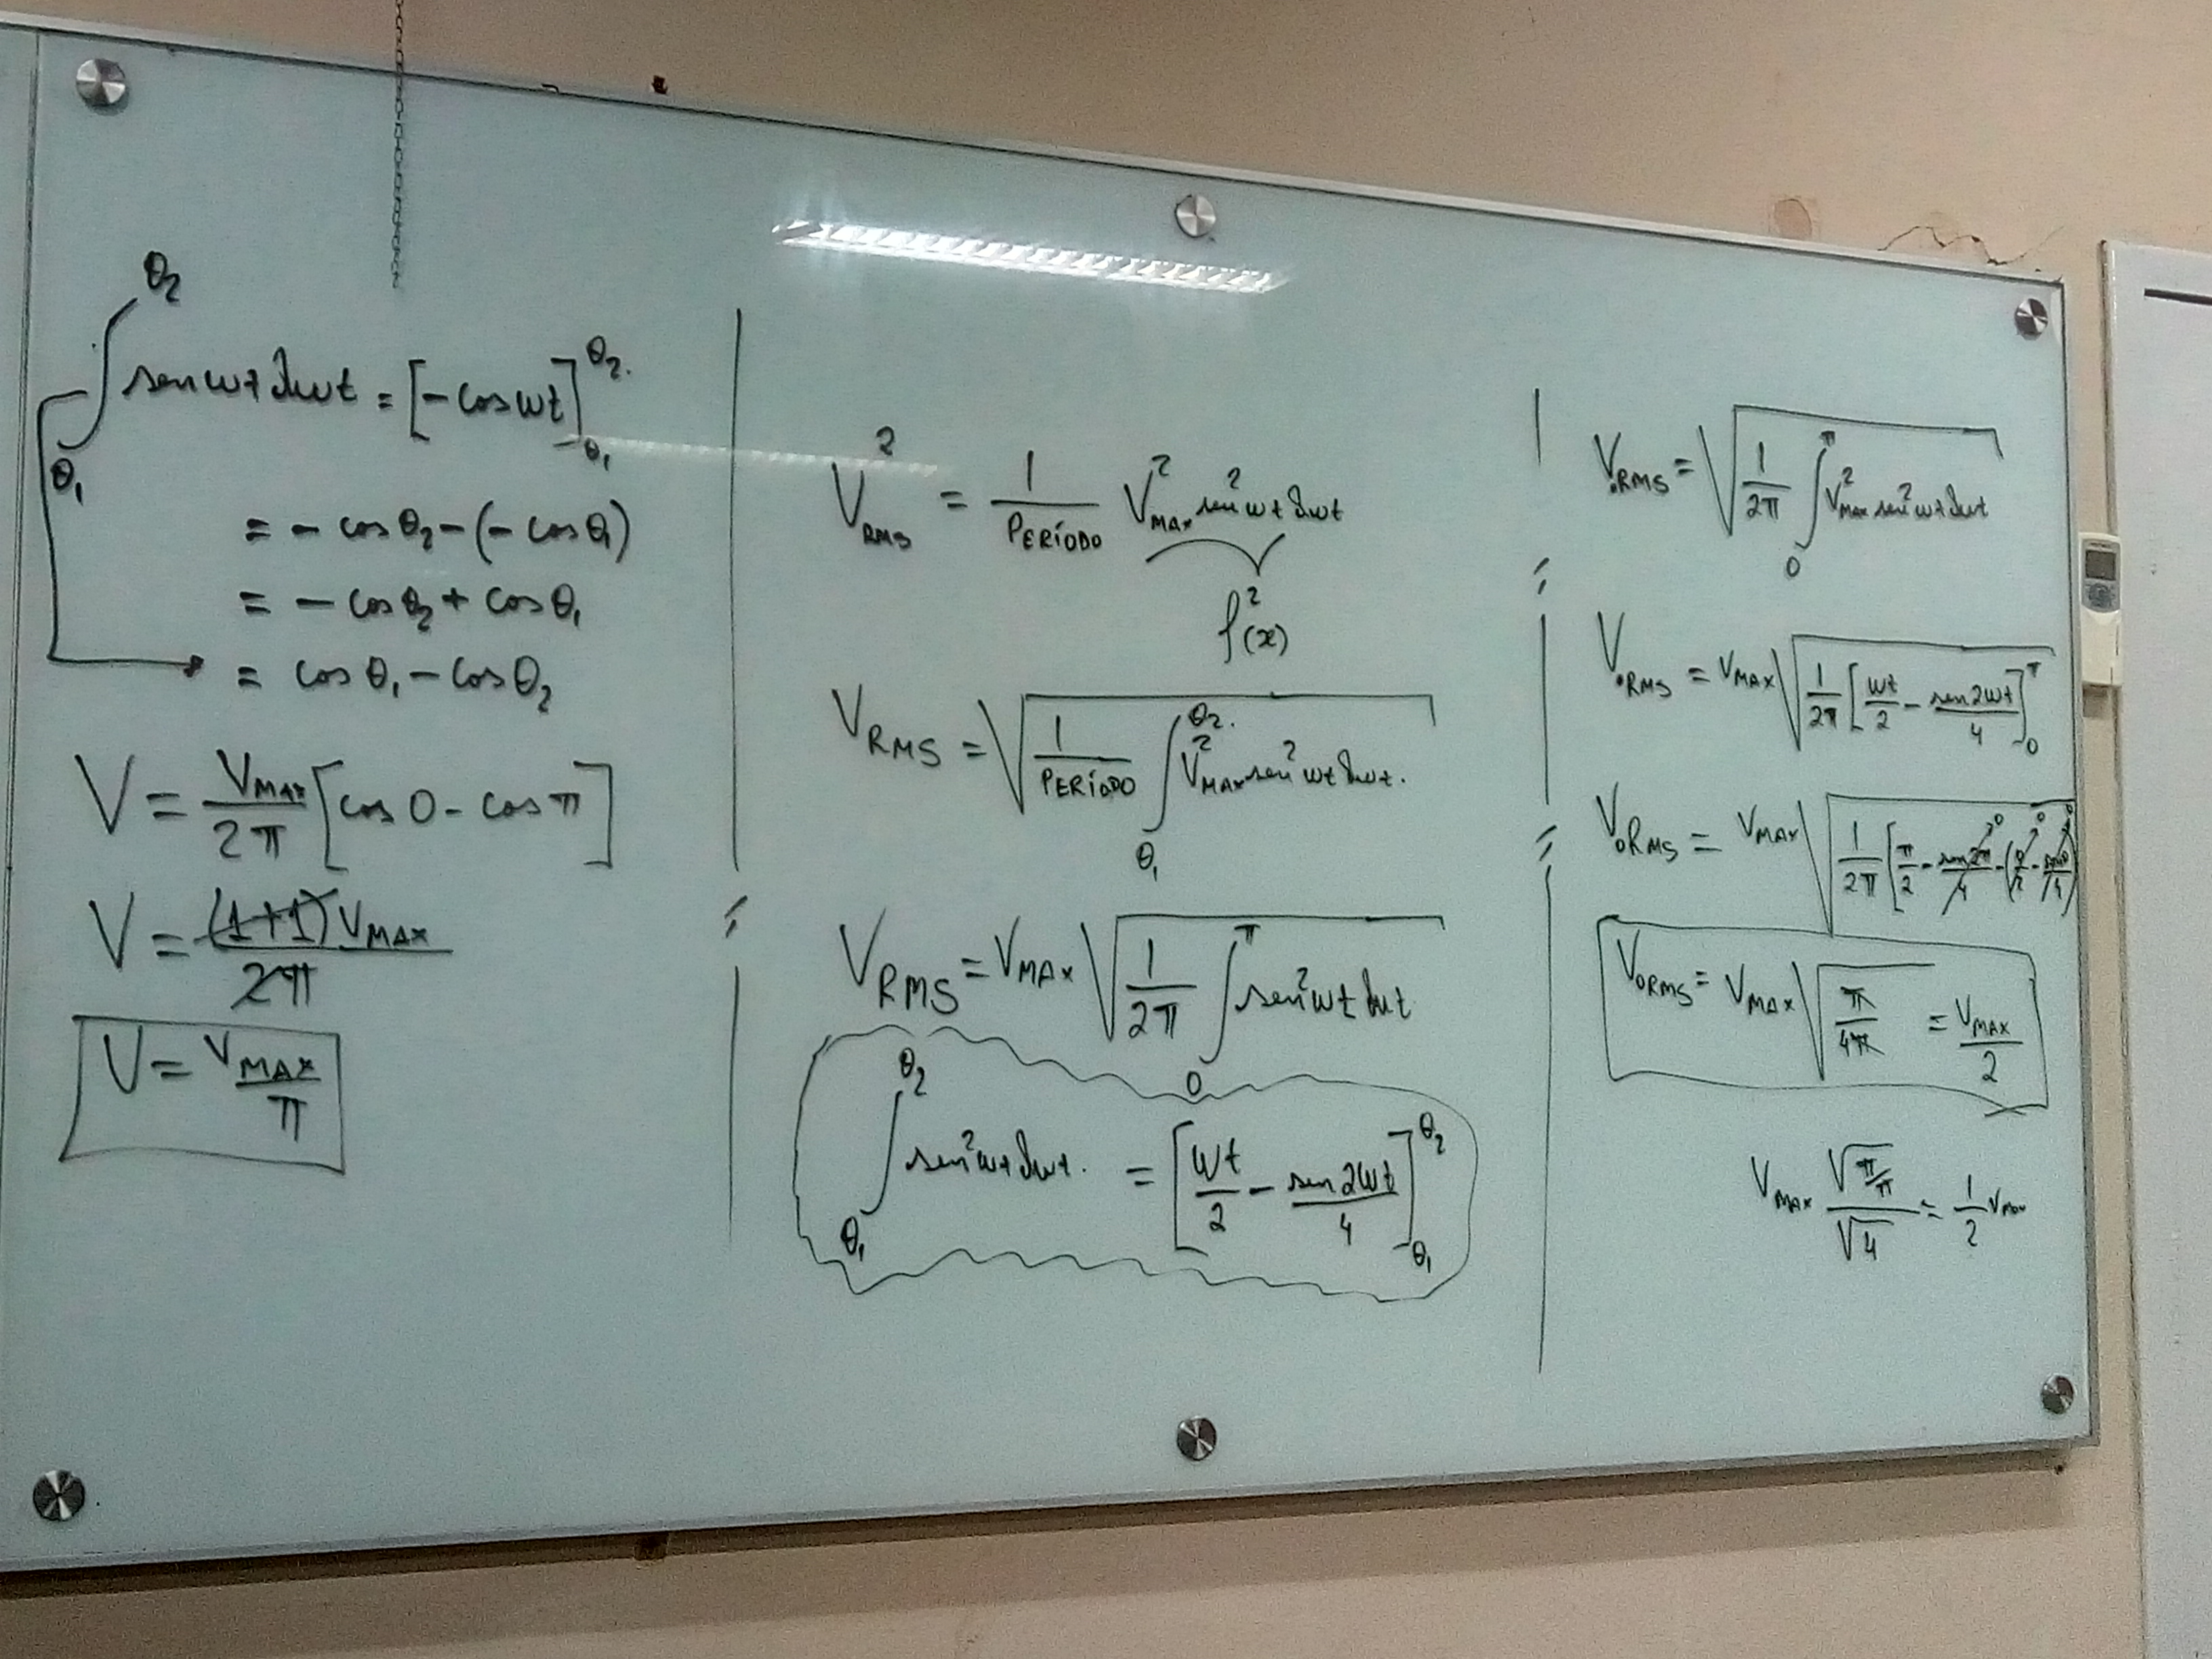 ∫_{θ₁}^{θ₂} sen wt dwt = [-cos wt]_{θ₁}^{θ₂}.
= - cos θ₂ - (- cos θ₁)
= - cos θ₂ + cos θ₁
= cos θ₁ - cos θ₂
V = V_MAX/2π [cos 0 - cos π]
V = (1+1) V_MAX / 2π
V = V_MAX/π
V²_RMS = 1/PERÍODO V²_MAX sen² wt dwt
f²(x)
V_RMS = √(1/PERÍODO ∫_{θ₁}^{θ₂.} V²_MAX sen² wt dwt.)
V_RMS = V_MAX √(1/2π ∫_0^π sen² wt dwt)
∫_{θ₁}^{θ₂} sen² wt dwt. = [wt/2 - sen 2wt/4]_{θ₁}^{θ₂}
V_{oRMS} = √(1/2π ∫_0^π V²_MAX sen² wt dwt)
V_{oRMS} = V_MAX √(1/2π [wt/2 - sen 2wt/4]_0^π)
V_{oRMS} = V_MAX √(1/2π [π/2 - sen 2π/4 - (0/2 - sen 0/4)
V_{oRMS} = V_MAX √(π/4π) = V_MAX/2
V_MAX √(π/π)/√4 = 1/2 V_MAX